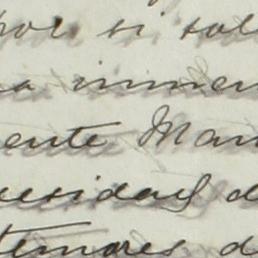 por si sol
a inmen
ente Man
esidad d
temores d